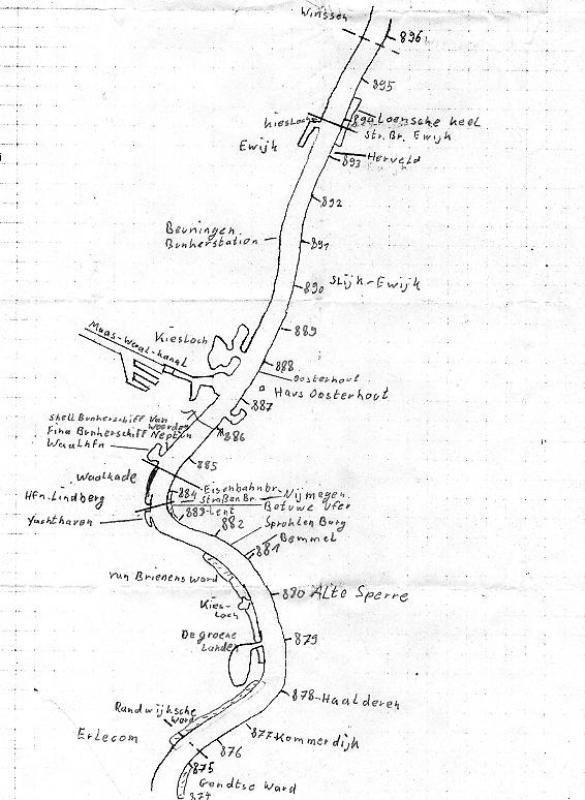 Winssen
896
895
Kiesloch
894 Loensche Keel
Str. Br. Ewijk
Ewijk
893
Herveld
892
Beuningen
Bunkerstation
891
890
Slijk-Ewijk
889
Maas-Waal-Kanal
Kiesloch
888
Oosterhout
Haus Oosterhout
887
Shell Bunkerschiff Van
Woerden
Fina Bunkerschiff Neptun
886
Waalhfn
885
Waalkade
884
Eisenbahnbr.
Nijmegen
Hfn. Lindberg
Straßen Br.
883-Lent
Betuwe Ufer
Yachthaven
882
Sprohlen Burg
881
Bemmel
van Brienensward
880 Alte Sperre
Kies-
loch
De groene
Landen
879
878-Haalderen
Randwijksche
Ward
877-Kommerdijk
Erlecom
876
875
Gendtse Ward
874